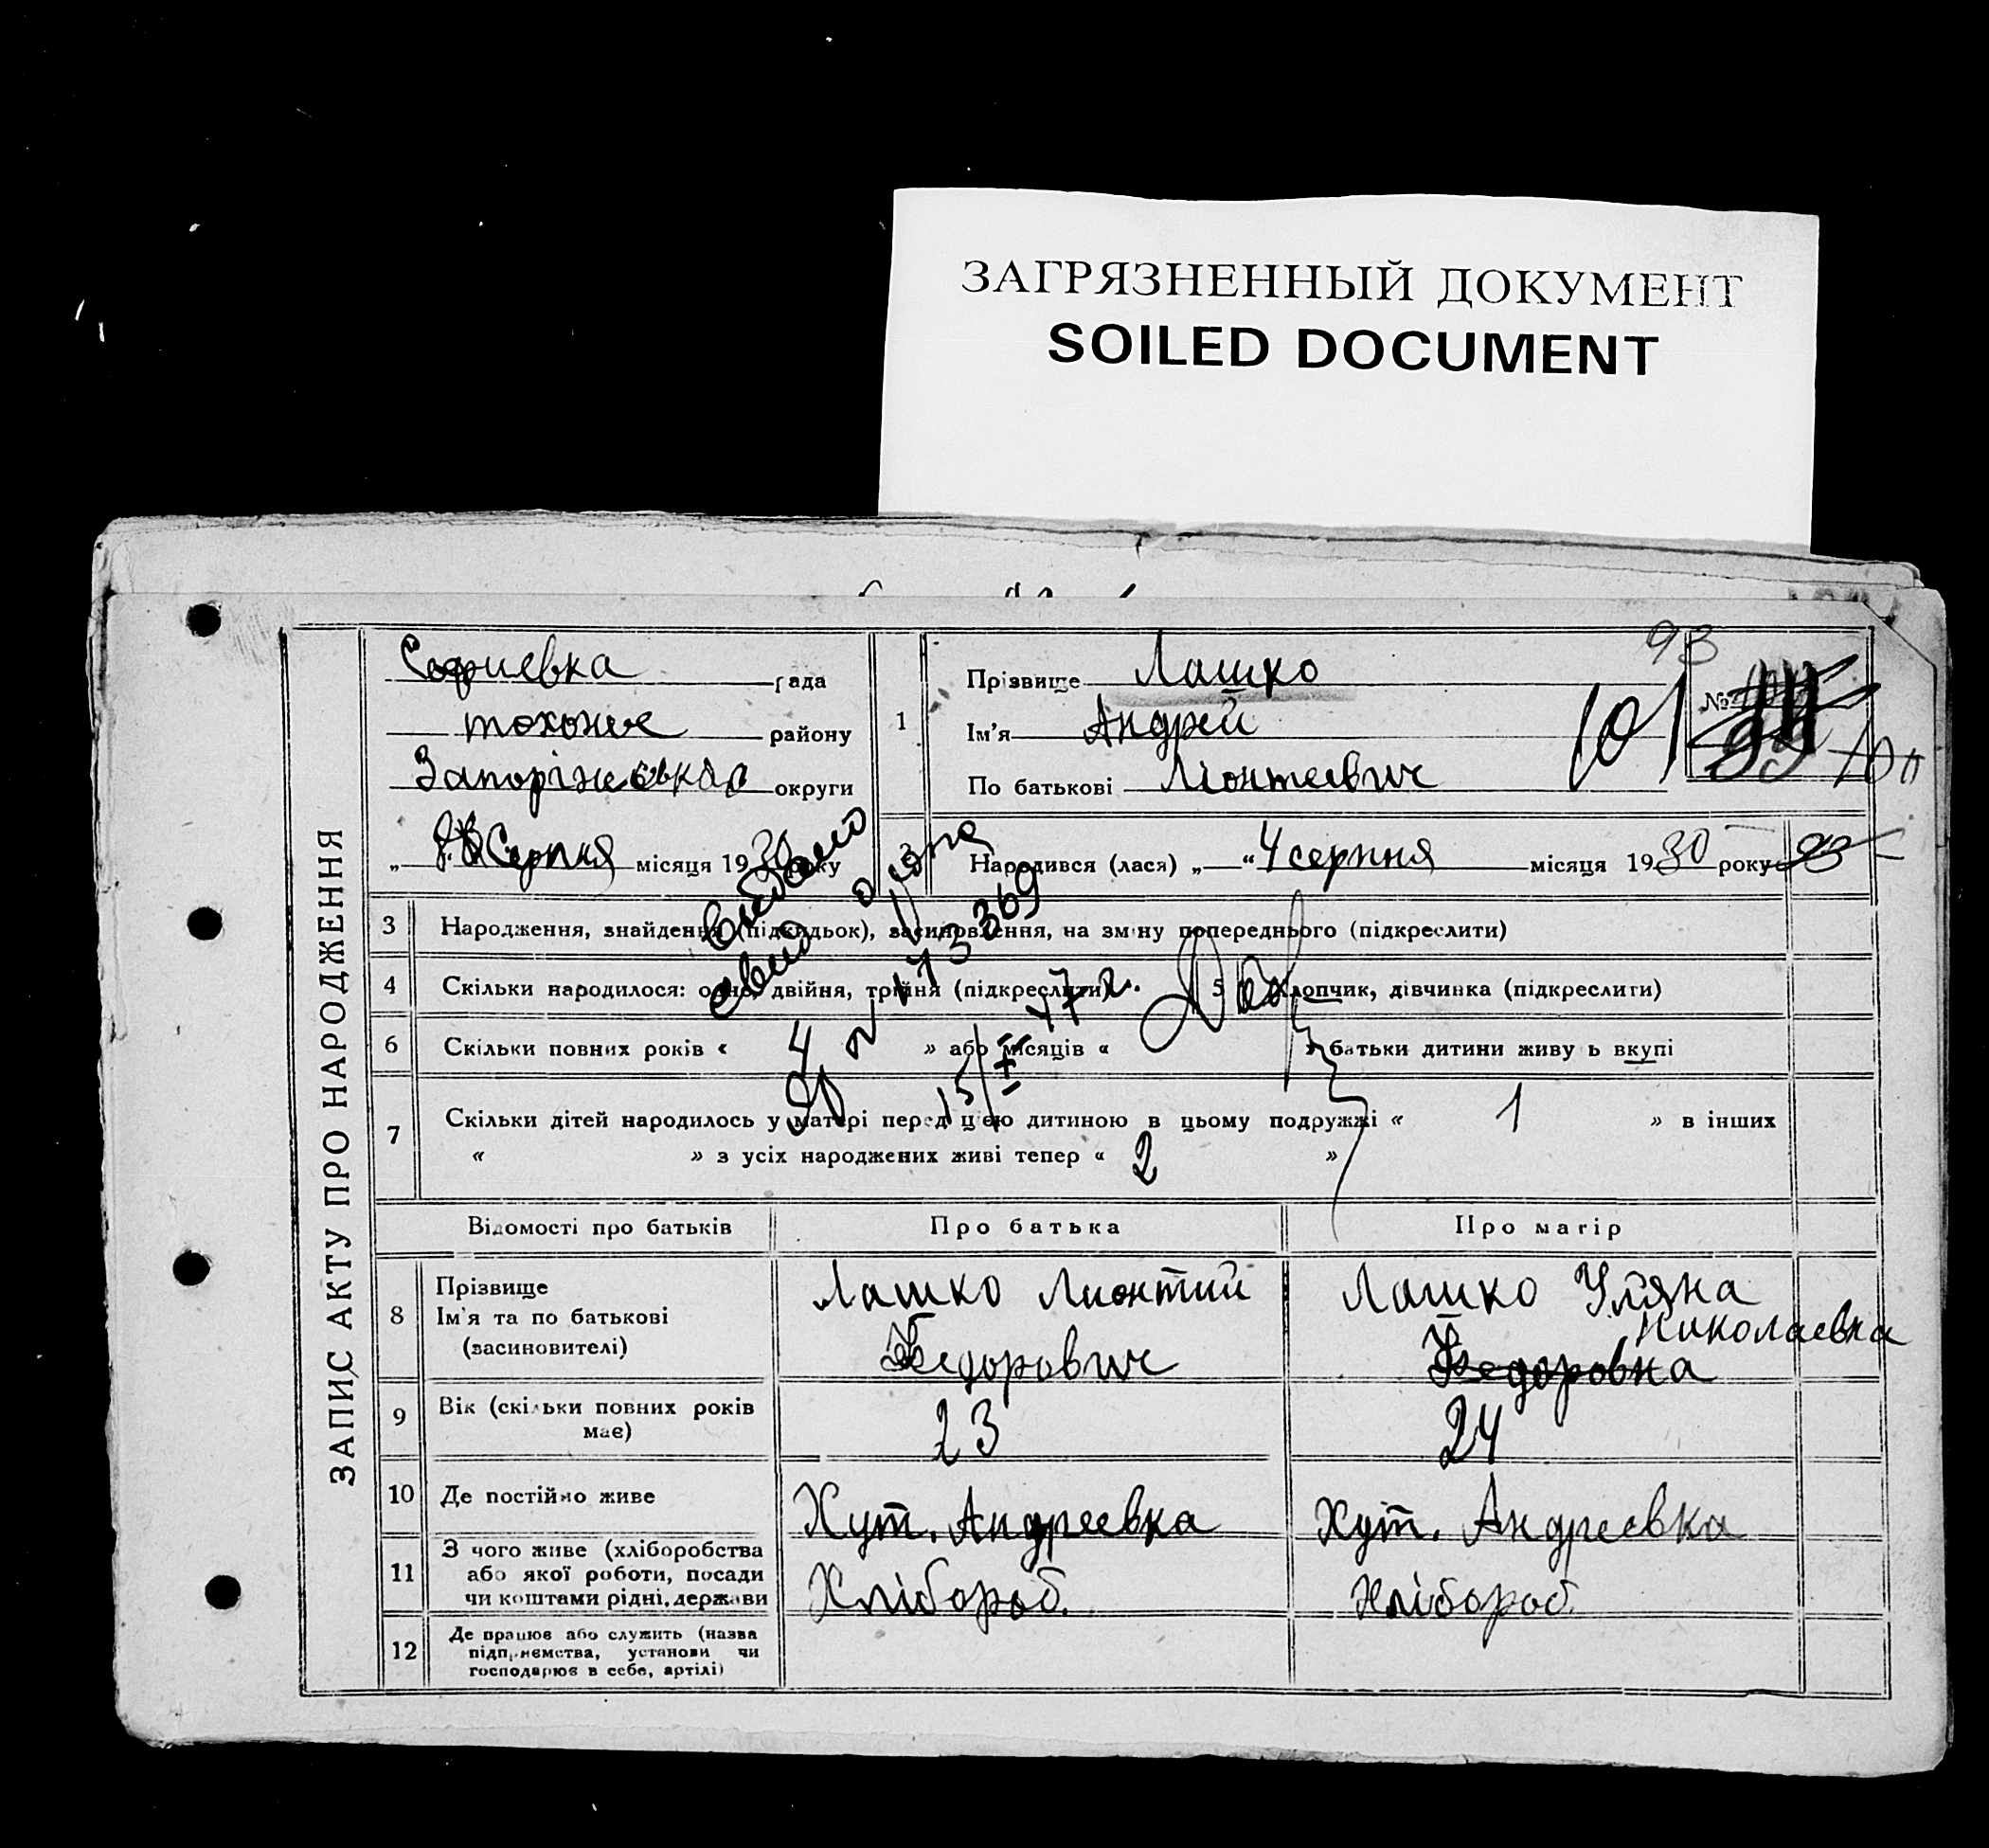 ЗАГРЯЗНЕННЫЙ ДОКУМЕНТ
SOILED DOCUMENT
ЗАПИС АКТУ ПРО НАРОДЖЕННЯ
Софиевка рада
району
округи
„ Серпня місяця 1930 року
1
Прізвище Лашко
Ім'я Андрей
По батькові Лионтевич
93
101
№
99
100
Народився (лася) „ “ 4 серпня місяця 1930 року
93
Видано
свид о
173369
15/IX 47 г.
3 Народження, знайдення (підкидьок), засиновлення, на зміну попереднього (підкреслити)
4 Скільки народилося: одно, двійня, трійня (підкреслити) 5 Хлопчик, дівчинка (підкреслити)
6 Скільки повних років « 4 » або місяців « » батьки дитини живуть вкупі
7 Скільки дітей народилось у матері перед цією дитиною в цьому подружжі « 1 » в інших
« » з усіх народжених живі тепер « 2 »
Відомості про батьків Про батька Про матір
8 Прізвище
Ім'я та по батькові
(засиновителі)
Лашко Лионтий
Федорович
Лашко Уляна
Николаевна
Федоровна
9 Вік (скільки повних років
має)
23
24
10 Де постійно живе
Хут. Андреевка
Хут. Андреевка
11 З чого живе (хліборобства
або якої роботи, посади
чи коштами рідні, держави
Хлібороб.
Хлібороб.
12 Де працює або служить (назва
підприємства, установи чи
господарює в себе, артілі)